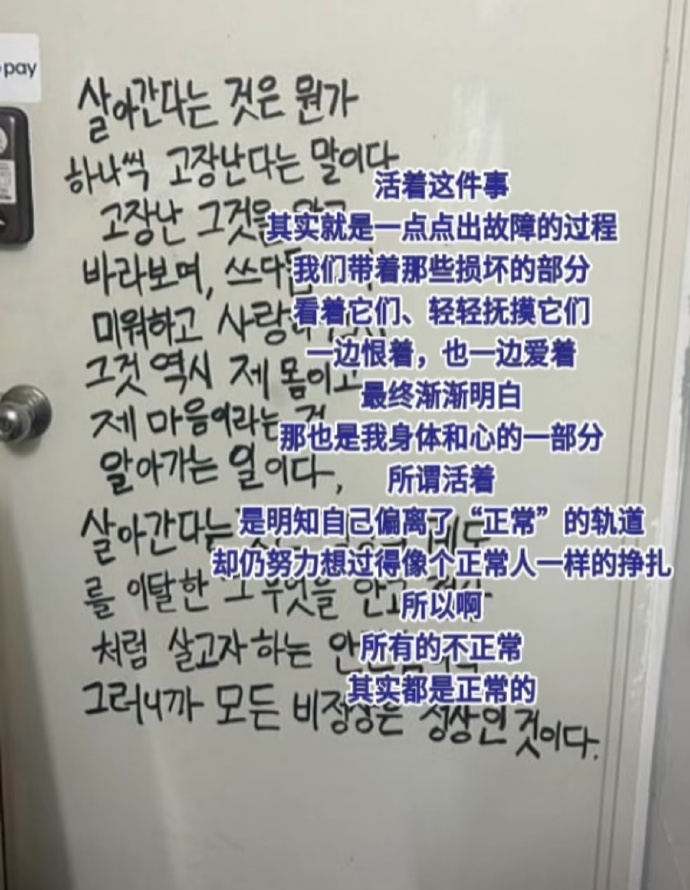 pay
살아간다는 것은 뭔가
하나씩 고장난다는 말이다
고장난 그것을
바라보며, 쓰다
미워하고
그것 역시 제 몸이고
제 마음이라는
알아가는 일이다,
살아간다는
를 이탈한 그 무엇을 안고
처럼 살고자 하는
그러니까 모든 비정상은 정상인 것이다.
活着这件事
其实就是一点点出故障的过程
我们带着那些损坏的部分
看着它们、轻轻抚摸它们
一边恨着，也一边爱着
最终渐渐明白
那也是我身体和心的一部分
所谓活着
是明知自己偏离了“正常”的轨道
却仍努力想过得像个正常人一样的挣扎
所以啊
所有的不正常
其实都是正常的